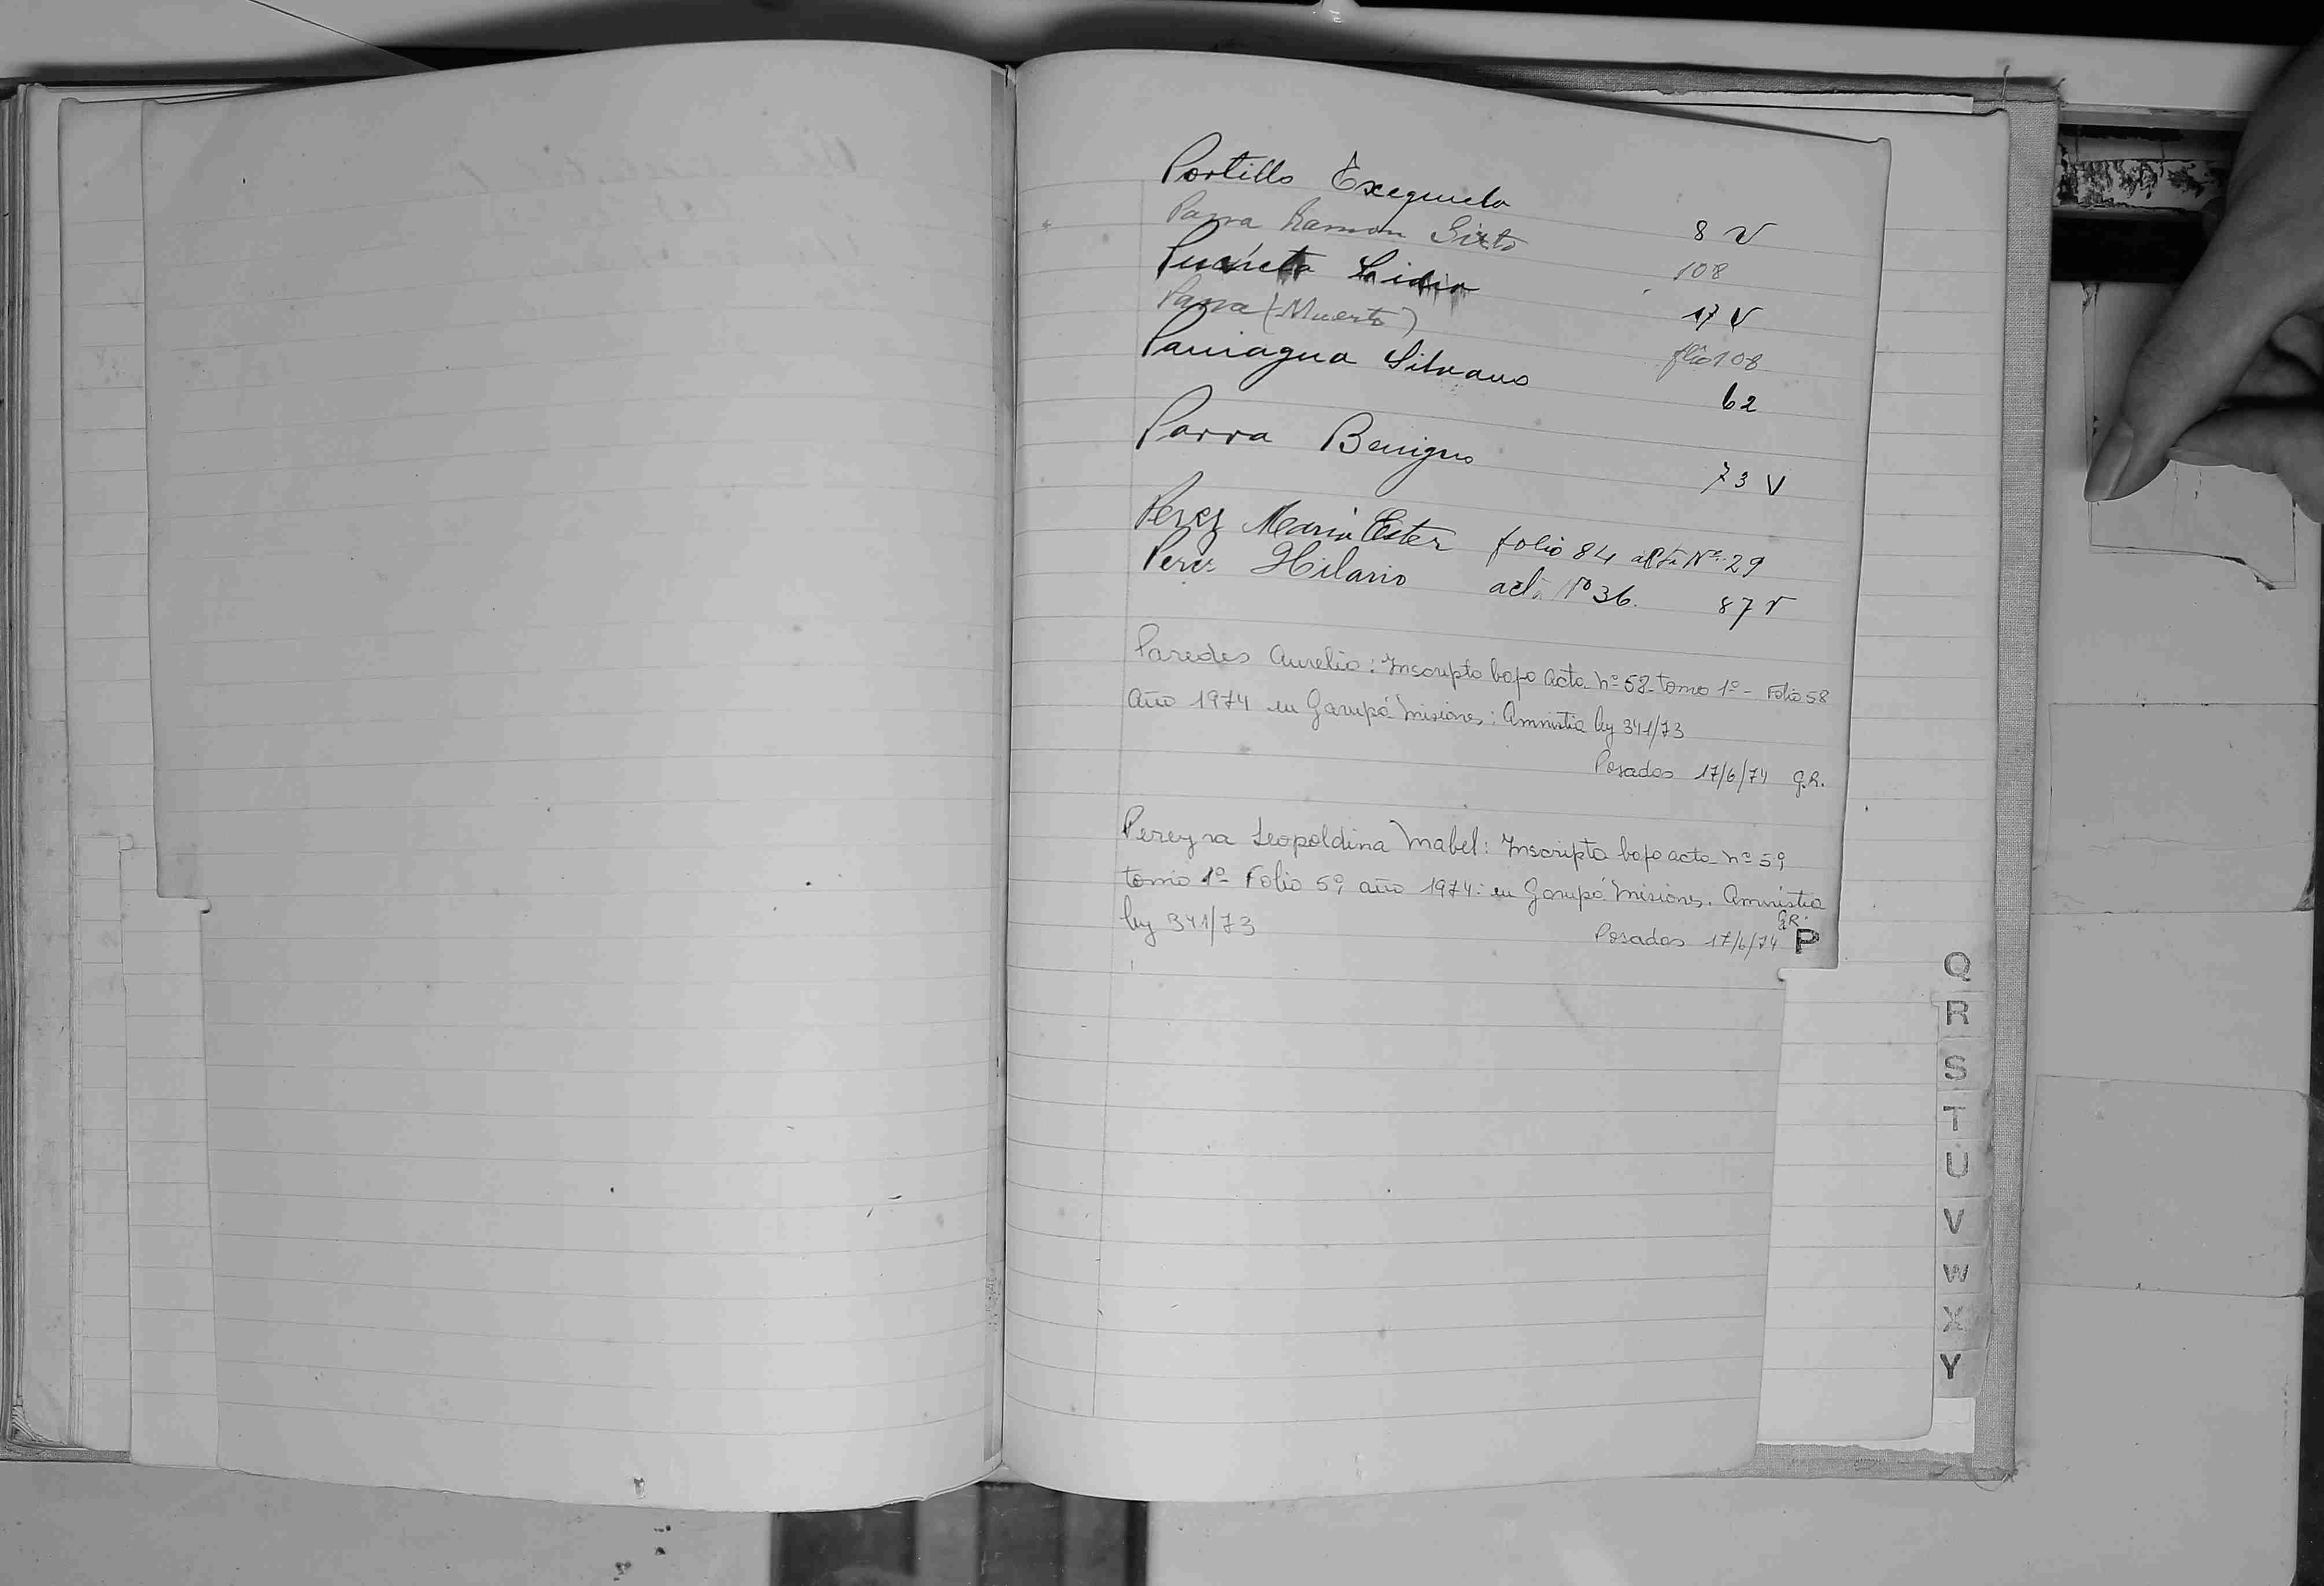 Portillo Exequiela
8 V
Parra Ramon Sixto
108
Pucheta Lidia
17 V
Parra (Muerto)
flio 108
Paniagua Silvano
62
Parra Benigno
73 V
Perez Maria Ester folio 84 acta Nº 29
Perez Hilario acta Nº 36. 87 V
Paredes Aurelio: Inscripto bajo acta nº 58 - tomo 1º - Folio 58
año 1974 en Garupá Misiones: Amnistia ley 341/73
Posadas 17/6/74 G.R.
Pereyra Leopoldina Mabel: Inscripta bajo acta nº 59
tomo 1º Folio 59 año 1974: en Garupá Misiones. Amnistia
ley 341/73
Posadas 17/6/74 G.R.
P
Q
R
S
T
U
V
W
X
Y